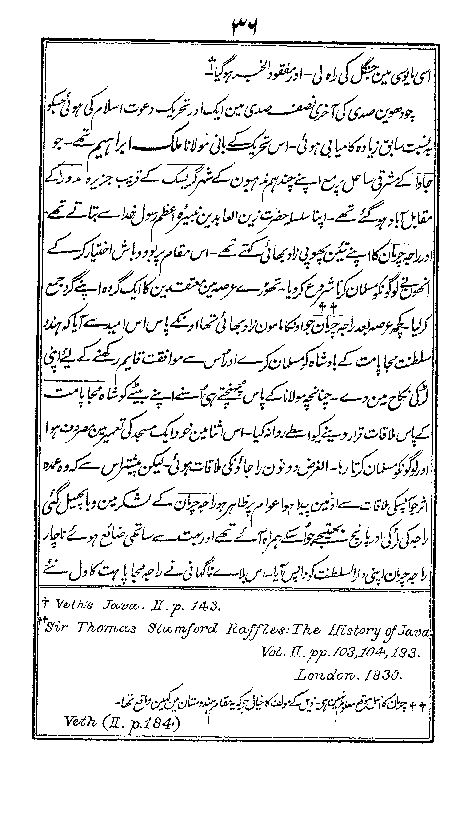 ۳۶
اسی مایوسی مین جنگل کی راہ لی - اور مفقود الخبر ہوگیا†
چودھوین صدی کی آخری نصف صدی مین ایک اور تحریک دعوت اسلام کی ہوئی جسکو
بہ نسبت سابق زیادہ کامیابی ہوئی - اس تحریک کے بانی مولانا ملک ابراہیم تھے - جو
جاوا کے شرقی ساحل پر مع اپنے چند ہم مذہبون کے شہر گریسک کے قریب جزیرہ مدورا کے
مقابل آباد ہوگئے تھے - اپنا سلسلہ حضرت زین العابدین نبیرہ عظم رسول خدا سے بتاتے تھے -
اور راجہ چرمان کا اپنے تئین پھوپی زاد بھائی کہتے تھے - اس مقام پر بود و باش اختیار کر کے
انھون نے لوگونکو مسلمان کرنا شروع کردیا - تھوڑے عرصہ مین معتقدین کا ایک گروہ اپنے گرد جمع
کرلیا - کچھ عرصہ بعد راجہ چرمان†† جو انکا مامون زاد بھائی تھا انکے پاس اس امید سے آیا کہ ہندو
سلطنت مجاپاہت کے بادشاہ کو مسلمان کرے اور اس سے موافقت قایم رکھنے کے لئے اپنی
لڑکی نکاح مین دے - چنانچہ مولانا کے پاس پہنچتے ہی اُسنے اپنے بیٹے کو شاہ مجاپاہت
کے پاس ملاقات قرار دینے کیواسطے روانہ کیا - اس اثنا مین خود ایک مسجد کی تعمیر مین مصروف ہوا
اور لوگونکو مسلمان کرتا رہا - الغرض دونون راجائونکی ملاقات ہوئی - لیکن پیشتر اس سے کہ وہ عمدہ
اثر جو انکی ملاقات سے اونمین پیدا ہوا عوام پر ظاہر ہو راجہ چرمان کے لشکر مین وبا پھیل گئی
راجہ کی لڑکی اور پانچ بھتیجے جو اسکے ہمراہ آئے تھے اور بہت سے ساتھی ضائع ہوئے ناچار
راجہ چرمان اپنی دار السلطنت کو واپس آیا - اس بلاے ناگہانی نے راجہ مجاپاہت کا دل نئے
† Veth's Java. II. p. 143.
** Sir Thomas Stamford Raffles: The History of Java
Vol. II. pp. 103, 104, 193.
London. 1830.
†† چرمان کا اصل موقع معلوم نہین ہے۔ ویتھ کے مولف کا خیال ہے کہ یہ مقام ہندوستان مین کہین واقع تھا۔
Veth (II. p. 184)